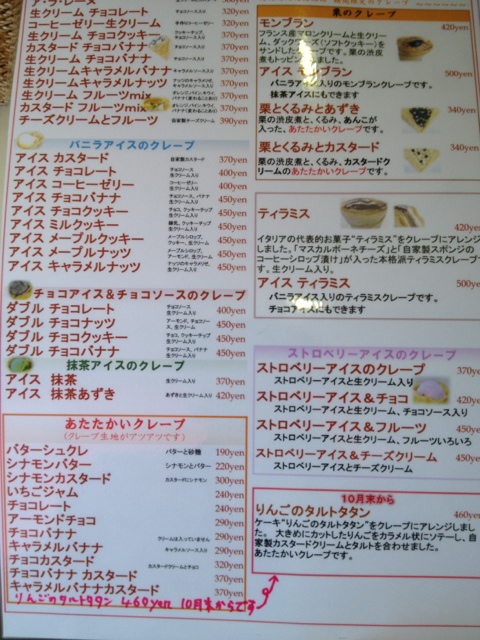 生クリーム チョコレート チョコソース入り 370yen
コーヒーゼリー生クリーム 370yen
生クリーム チョコクッキー 370yen
カスタード チョコバナナ チョコソース入り 370yen
生クリーム チョコバナナ チョコソース入り 370yen
生クリームキャラメルバナナ キャラメルソース入り 370yen
生クリームキャラメルナッツ 370yen
生クリーム フルーツmix 370yen
カスタード フルーツmix 370yen
チーズクリームとフルーツ 自家製チーズクリーム 390yen
バニラアイスのクレープ
アイス カスタード 自家製カスタード 370yen
アイス チョコレート チョコソース 生クリーム入り 400yen
アイス コーヒーゼリー コーヒーゼリー 生クリーム入り 400yen
アイス チョコバナナ チョコソース、バナナ 生クリーム入り 450yen
アイス チョコクッキー チョコ、クッキーチップ 生クリーム入り 450yen
アイス ミルククッキー 練乳、クッキーチップ 生クリーム入り 450yen
アイス メープルクッキー メープルシロップ、クッキー、生クリーム 450yen
アイス メープルナッツ メープルシロップ、アーモンド、生クリーム 450yen
アイス キャラメルナッツ 450yen
チョコアイス＆チョコソースのクレープ
ダブル チョコレート チョコソース 生クリーム入り 400yen
ダブル チョコナッツ アーモンド、チョコソース、生クリーム 450yen
ダブル チョコクッキー チョコ、クッキーチップ 生クリーム入り 450yen
ダブル チョコバナナ チョコソース、バナナ 生クリーム入り 450yen
抹茶アイスのクレープ
アイス 抹茶 生クリーム入り 370yen
アイス 抹茶あずき あずきと生クリーム入り 420yen
あたたかいクレープ
(クレープ生地がアツアツです)
バターシュクレ バターと砂糖 190yen
シナモンバター シナモンとバター 220yen
シナモンカスタード カスタードにシナモン 300yen
いちごジャム 240yen
チョコレート 240yen
アーモンドチョコ 290yen
チョコバナナ クリームは入っていません 290yen
キャラメルバナナ キャラメルソース入り 290yen
チョコカスタード カスタードクリームとチョコ 320yen
チョコバナナ カスタード 370yen
キャラメルバナナカスタード 370yen
りんごのタルトタタン 460yen 10月末からです
栗のクレープ
モンブラン 420yen
フランス産マロンクリームと生クリーム、ダックワーズ(ソフトクッキー)をサンドしたクレープです。栗の渋皮煮もトッピングしました。
アイス モンブラン 500yen
バニラアイス入りのモンブランクレープです。
抹茶アイスにもできます
栗とくるみとあずき 340yen
栗の渋皮煮と、くるみ、あんこが
入った、あたたかいクレープです。
栗とくるみとカスタード 340yen
栗の渋皮煮と、くるみ、カスタードク
リームのあたたかいクレープです。
ティラミス 420yen
イタリアの代表的お菓子“ティラミス”をクレープにアレンジしました。「マスカルポーネチーズ」と「自家製スポンジのコーヒーシロップ漬け」が入った本格派ティラミスクレープです。生クリーム入り。
アイス ティラミス 500yen
バニラアイス入りのティラミスクレープです。
チョコアイスにもできます
ストロベリーアイスのクレープ
ストロベリーアイスのクレープ 370yen
ストロベリーアイスと生クリーム入り
ストロベリーアイス＆チョコ 420yen
ストロベリーアイスと生クリーム、チョコソース入り
ストロベリーアイス＆フルーツ 450yen
ストロベリーアイスと生クリーム、フルーツいろいろ
ストロベリーアイス＆チーズクリーム 450yen
ストロベリーアイスとチーズクリーム
10月末から
りんごのタルトタタン 460yen
ケーキ“りんごのタルトタタン”をクレープにアレンジしました。 大きめにカットしたりんごをカラメル状にソテーし、自家製カスタードクリームとタルトを合わせました。
あたたかいクレープです。